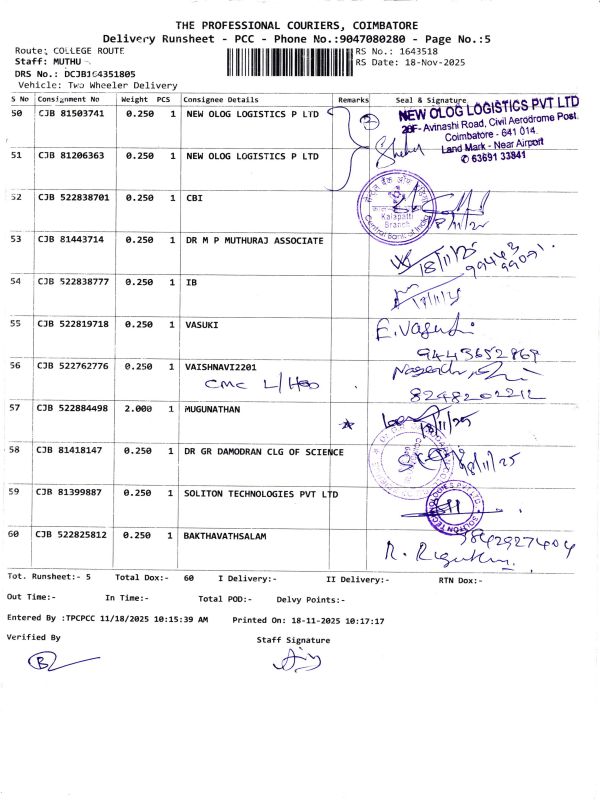 THE PROFESSIONAL COURIERS, COIMBATORE
Delivery Runsheet - PCC - Phone No.:9047080280 - Page No.:5
Route: COLLEGE ROUTE RS No.: 1643518
Staff: MUTHU RS Date: 18-Nov-2025
DRS No.: DCJB164351805
Vehicle: Two Wheeler Delivery
S No Consignment No Weight PCS Consignee Details Remarks Seal & Signature
50 CJB 81503741 0.250 1 NEW OLOG LOGISTICS P LTD 2
NEW OLOG LOGISTICS PVT LTD
Avinashi Road, Civil Aerodrome Post
Coimbatore - 641 014.
Land Mark - Near Airport
✆ 63691 33841
51 CJB 81206363 0.250 1 NEW OLOG LOGISTICS P LTD
52 CJB 522838701 0.250 1 CBI
Kalapatti
Branch
Central Bank of India
53 CJB 81443714 0.250 1 DR M P MUTHURAJ ASSOCIATE
18/11/25
54 CJB 522838777 0.250 1 IB
55 CJB 522819718 0.250 1 VASUKI
E.Vasuki
56 CJB 522762776 0.250 1 VAISHNAVI2201
CMC
8248202212
57 CJB 522884498 2.000 1 MUGUNATHAN
18/11/25
58 CJB 81418147 0.250 1 DR GR DAMODRAN CLG OF SCIENCE
18/11/25
59 CJB 81399887 0.250 1 SOLITON TECHNOLOGIES PVT LTD
SOLITON TECHNOLOGIES PVT LTD
60 CJB 522825812 0.250 1 BAKTHAVATHSALAM
Tot. Runsheet:- 5 Total Dox:- 60 I Delivery:- II Delivery:- RTN Dox:-
Out Time:- In Time:- Total POD:- Delvy Points:-
Entered By :TPCPCC 11/18/2025 10:15:39 AM Printed On: 18-11-2025 10:17:17
Verified By Staff Signature